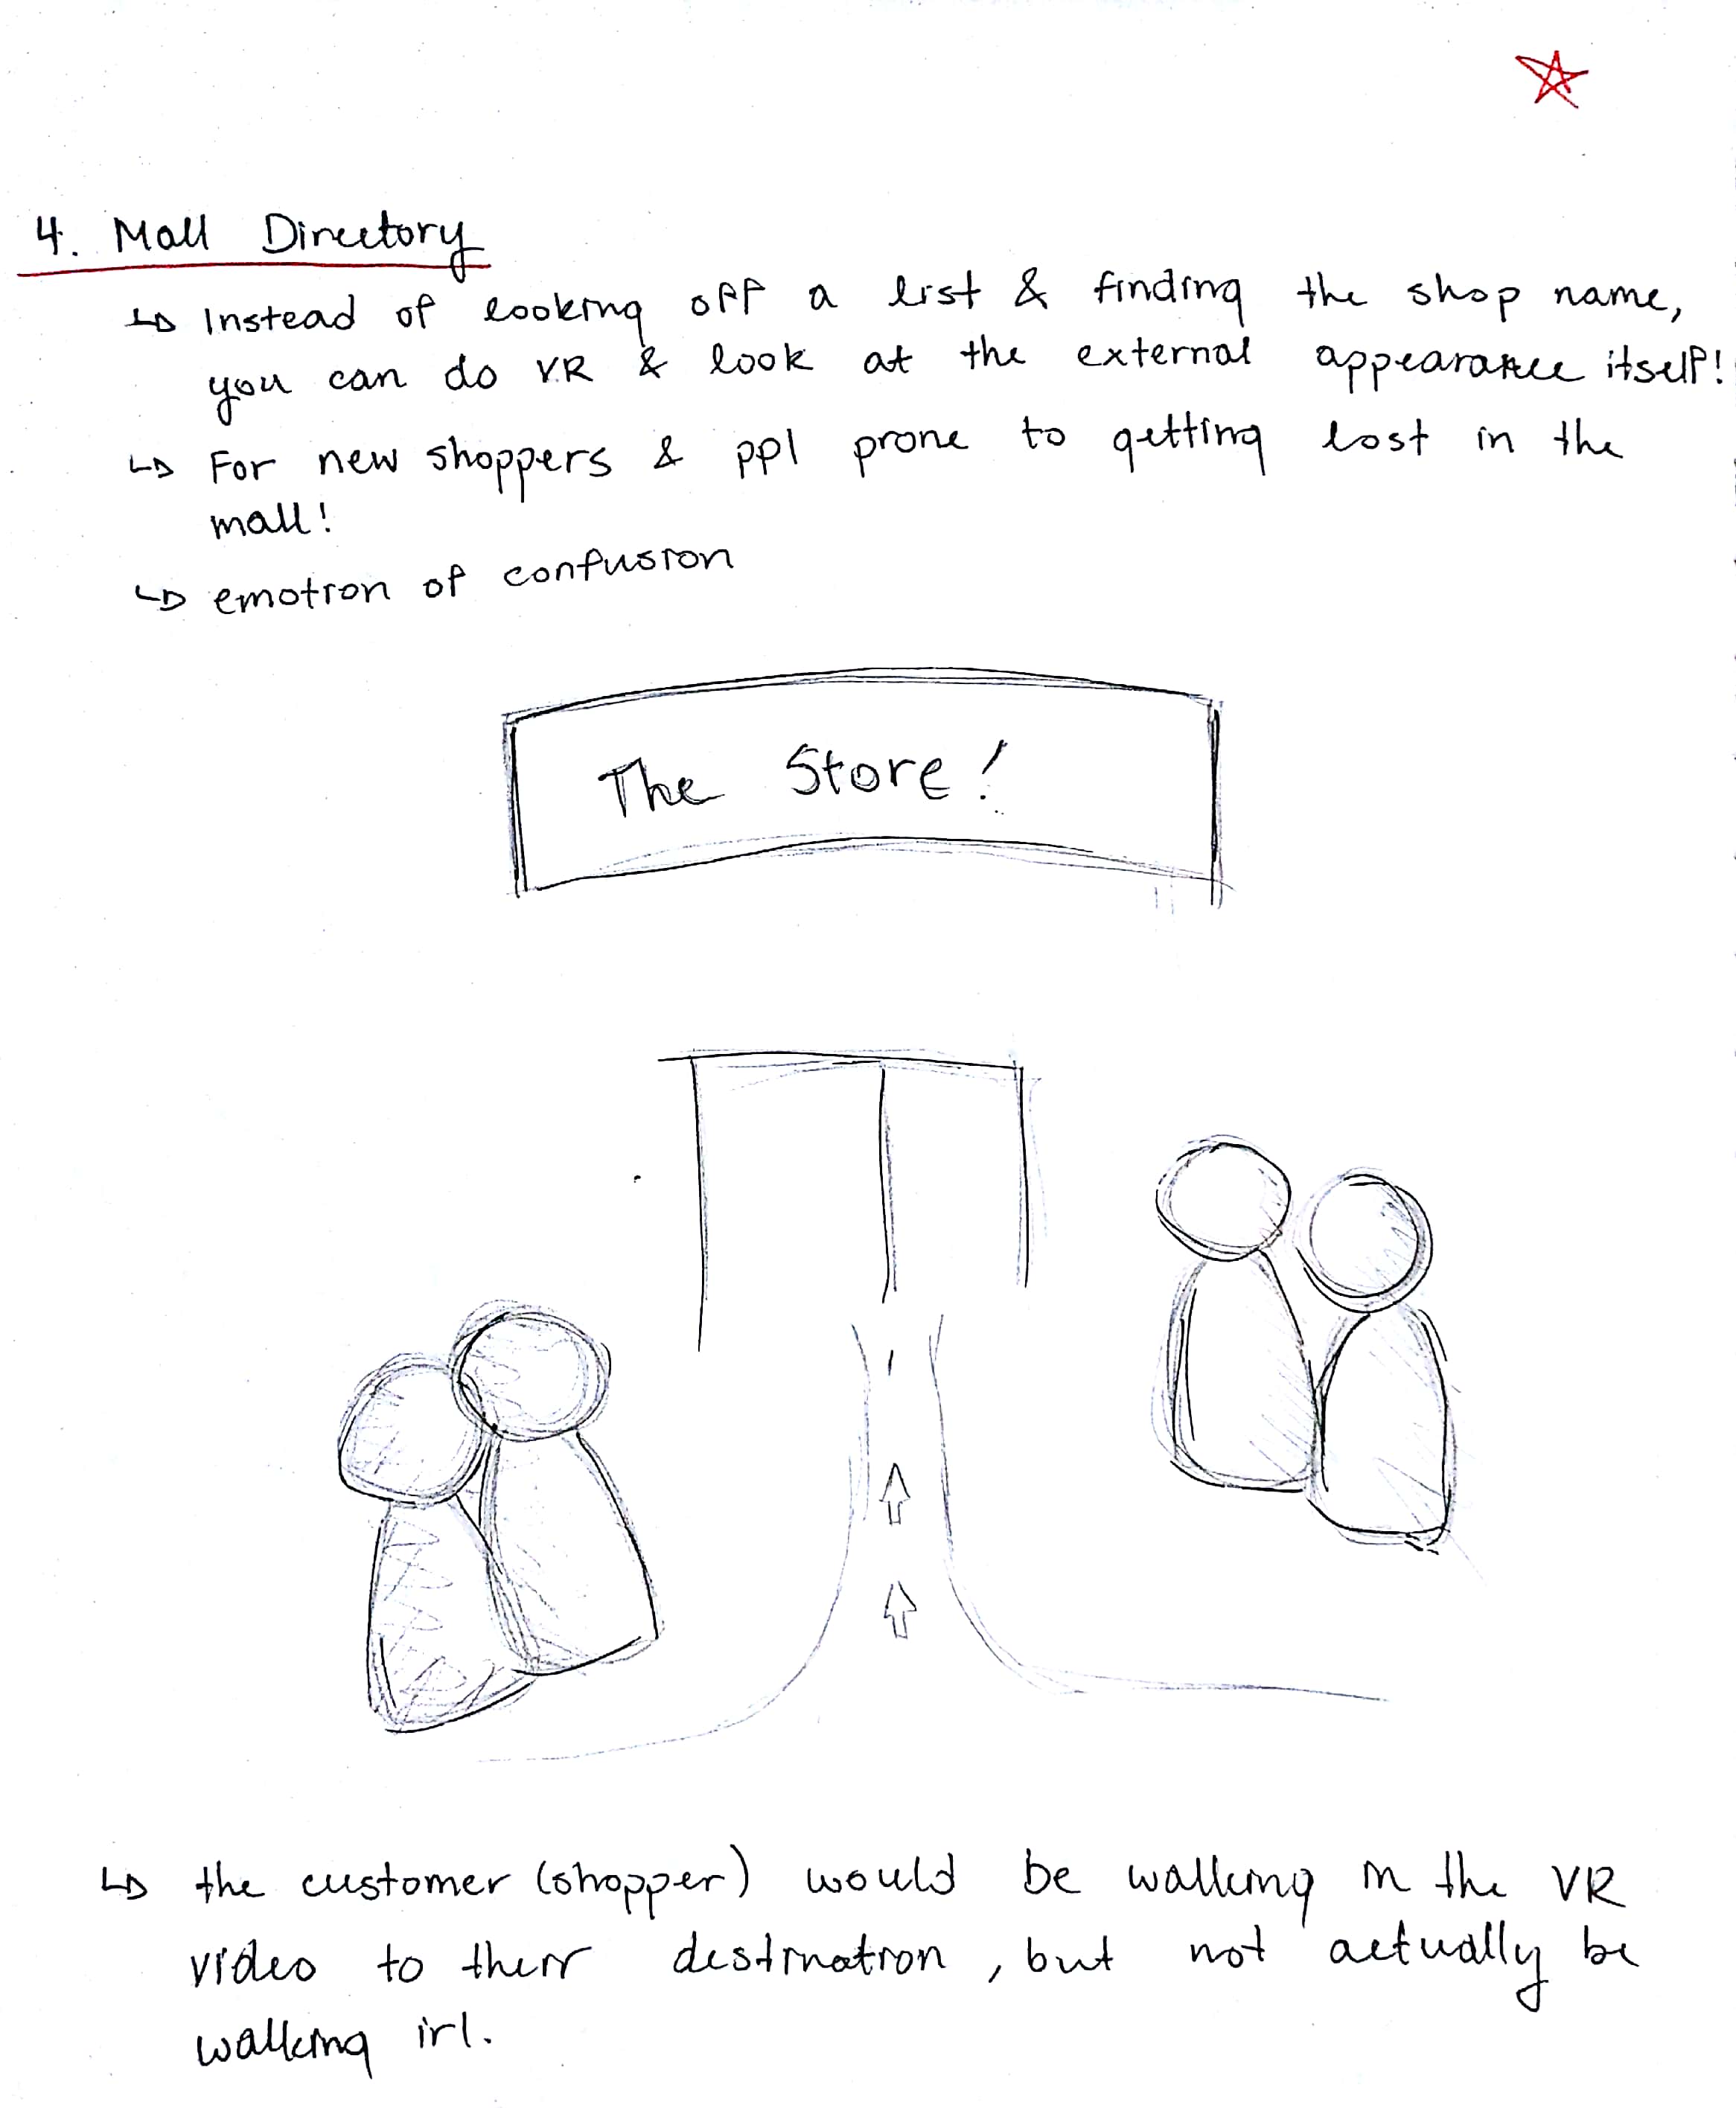 4. Mall Directory
↳ Instead of looking off a list & finding the shop name,
you can do VR & look at the external appearance itself!
↳ For new shoppers & ppl prone to getting lost in the
mall!
↳ emotion of confusion
The Store!
↳ the customer (shopper) would be walking in the VR
video to their destination, but not actually be
walking irl.